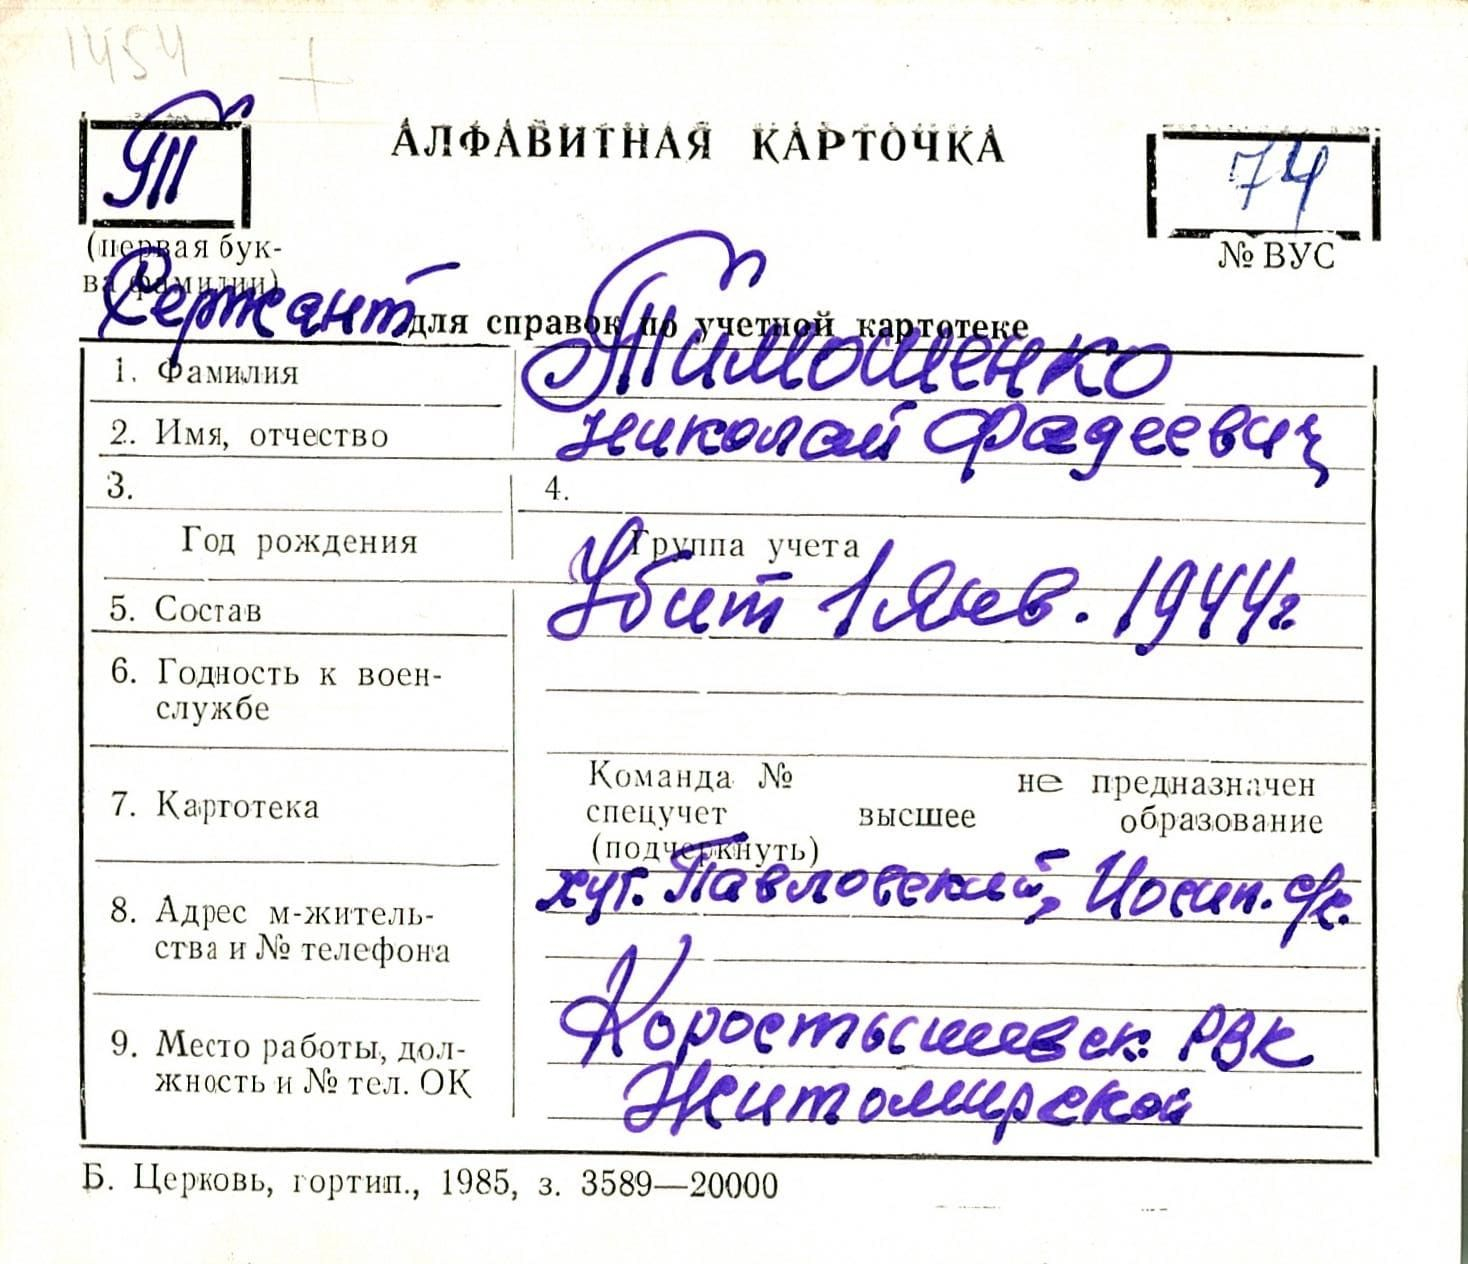 1454 +
Т АЛФАВИТНАЯ КАРТОЧКА 74
(первая бук-
ва фамилии)
№ ВУС
Сержант для справок по учетной картотеке
1. Фамилия Тимошенко
2. Имя, отчество Николай Фадеевич
3. 4.
Год рождения Группа учета
5. Состав Убит 1 янв. 1944г
6. Годность к воен-
службе
Команда № не предназначен
7. Картотека спецучет высшее образование
(подчеркнуть)
хут. Павловский, Иосип. с/с.
8. Адрес м-житель-
ства и № телефона
Коростышевск. РВК
9. Место работы, дол-
жность и № тел. ОК Житомирской
Б. Церковь, гортип., 1985, з. 3589—20000